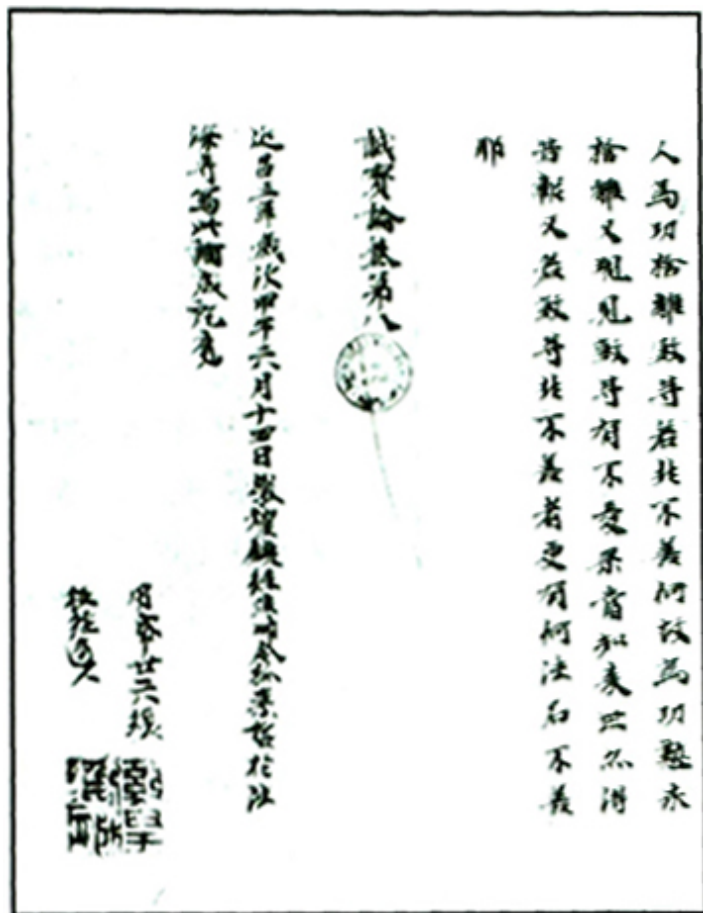 人為功捨離殺等若非不善何故為功懃求
捨離又現見殺等有不愛果當知來世亦得
苦報又若殺等非不善者更有何法名不善
耶
誠實論卷第八
延昌三年歲次甲午六月十四日敦煌鎮經生師令狐崇哲於法
海寺寫此論成訖竟
用帋廿六張
校經道人